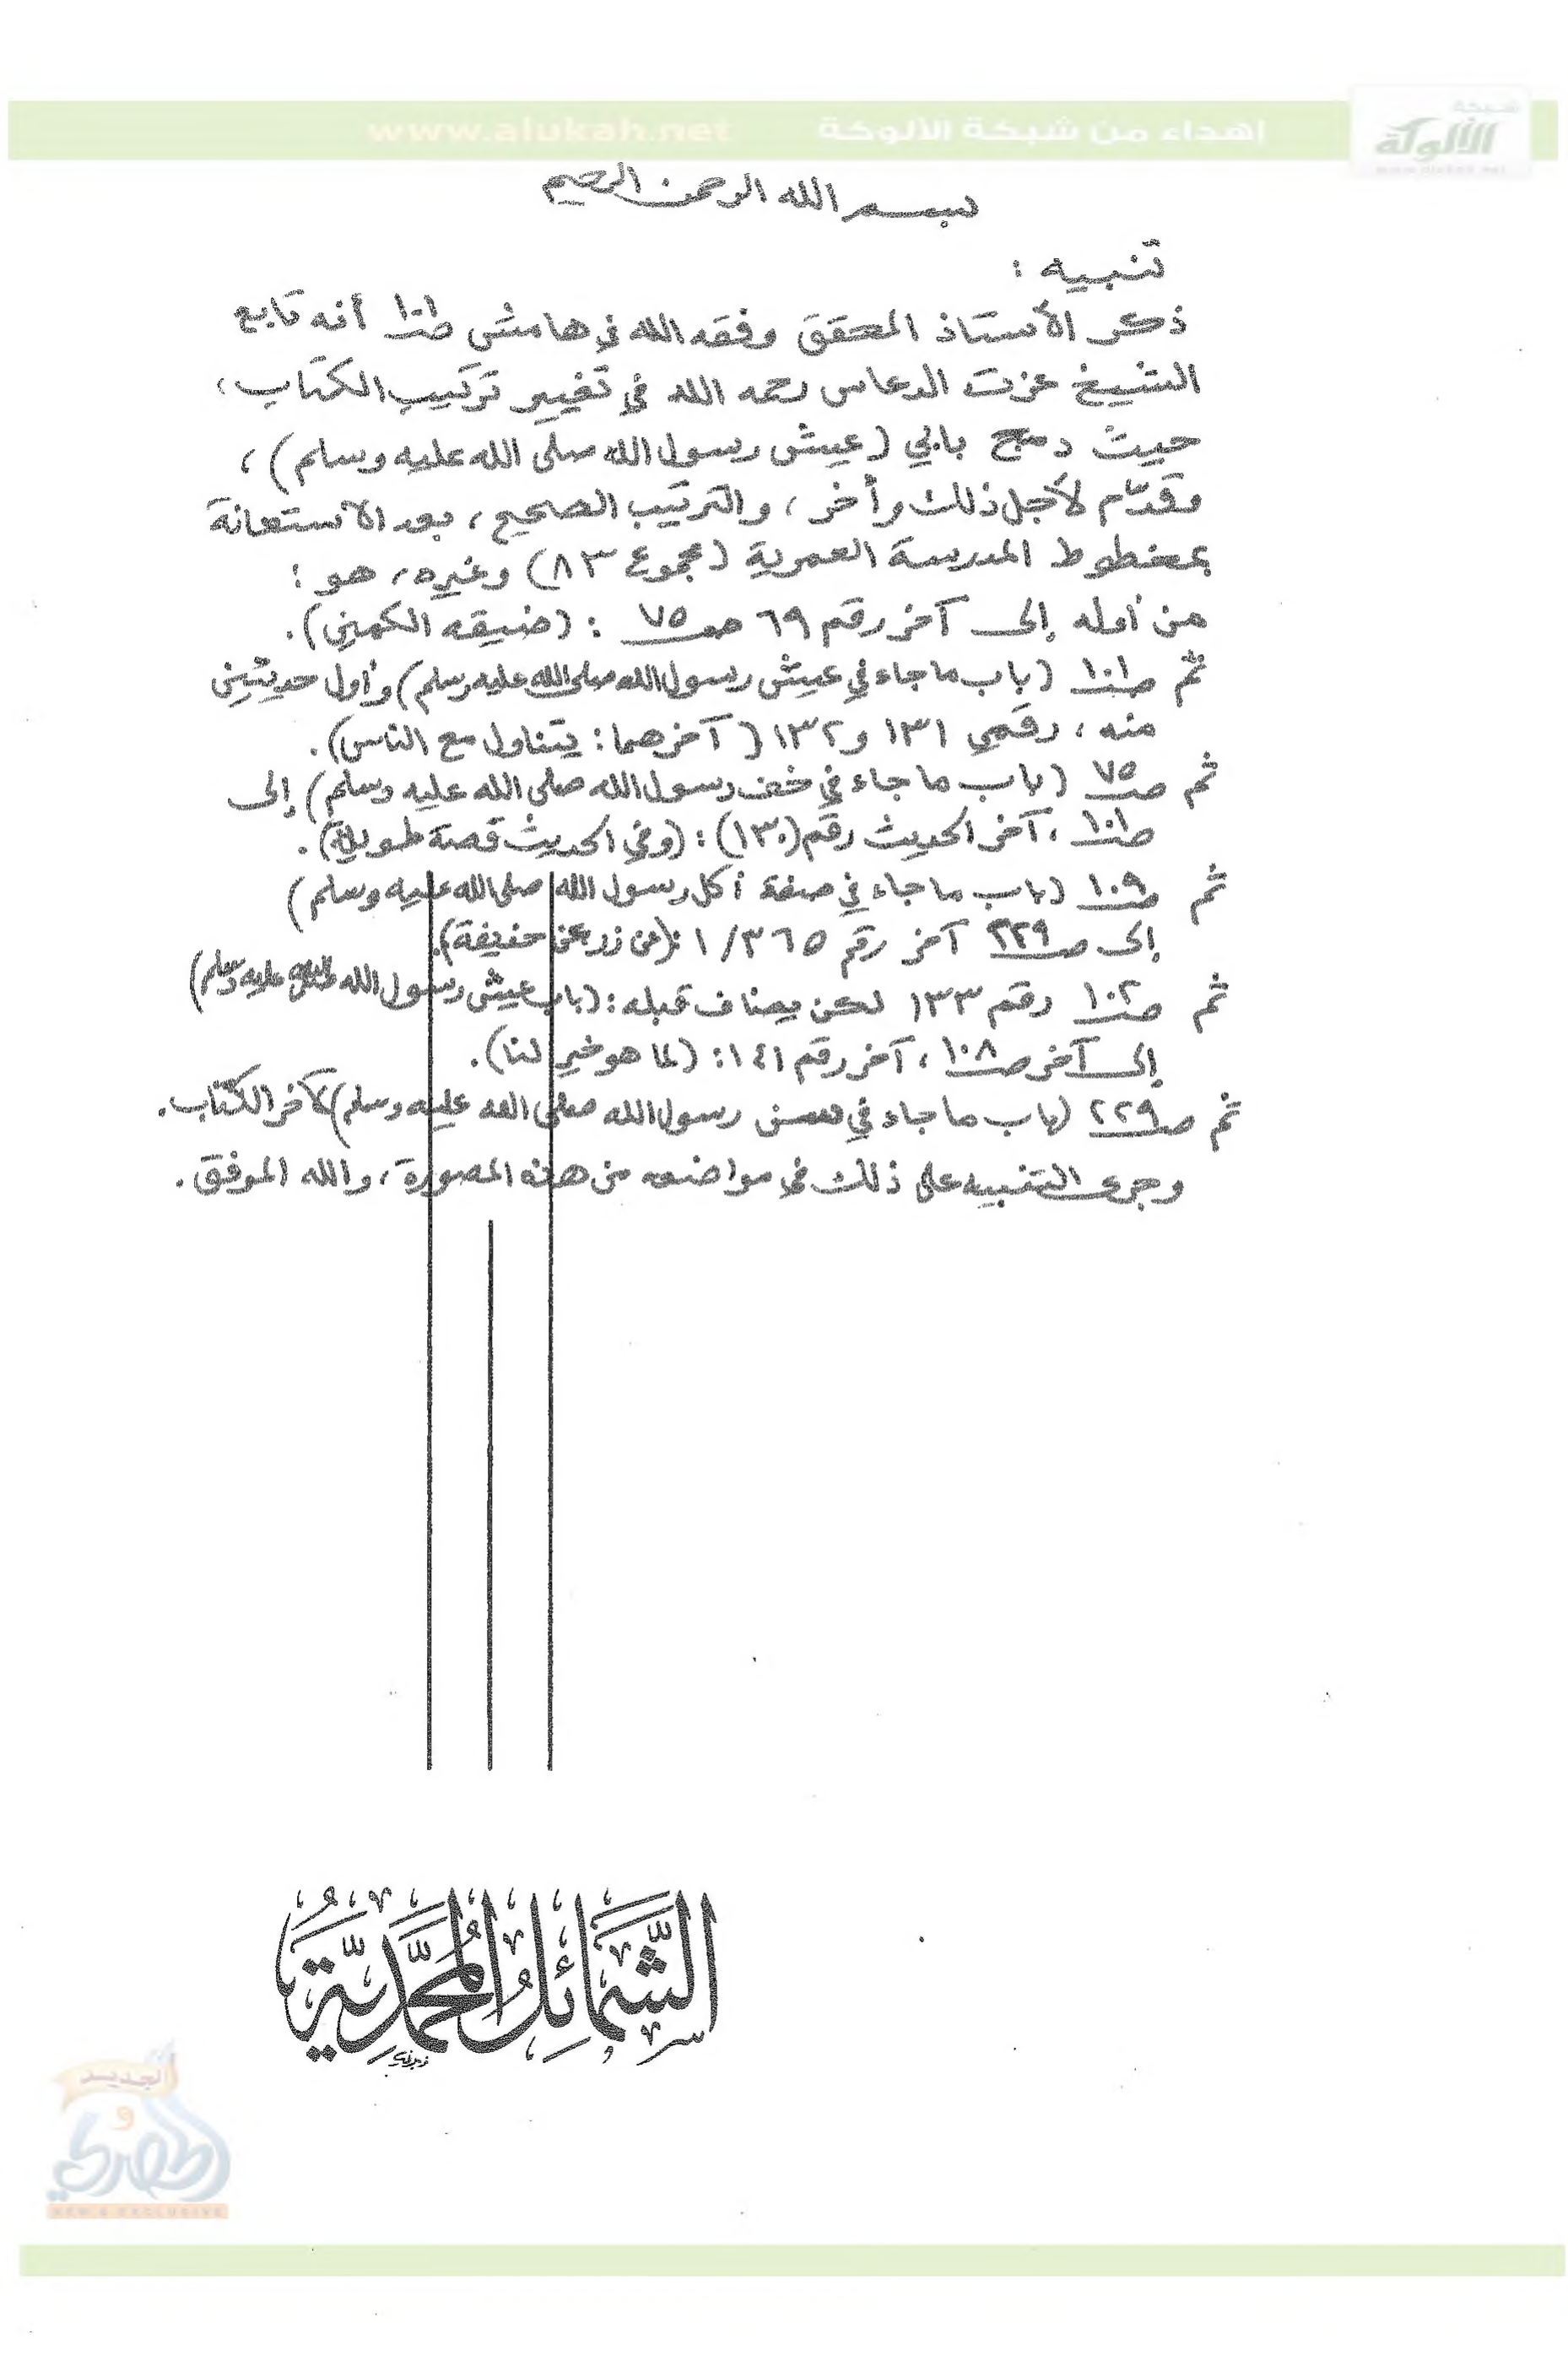 شبكة
الألوكة
www.alukah.net
اهداء من شبكة الألوكة www.alukah.net
بسم الله الرحمن الرحيم
تنبيه :
ذكر الأستاذ المحقق وفقه الله في هامش ص١٠١ أنه تابع
الشيخ عزت الدعاس رحمه الله في تغيير تركيب الكتاب،
حيث دمج بابي (عيش رسول الله صلى الله عليه وسلم)،
وقدّم لأجل ذلك وأخر، والترتيب الصحيح، بعد الاستعانة
بمخطوط المدرسة العمرية (مجموع ٨٣) وغيره، هو:
من أوله إلى آخر رقم ٦٩ ص ٧٥ : (ضيقه الكمين).
ثم ص١٠١ (باب ما جاء في عيش رسول الله صلى الله عليه وسلم) وأول حديثين
منه، رقمي ١٣١ و١٣٢ (آخرهما: يتناول مع الناس).
ثم ص٧٥ (باب ما جاء في خف رسول الله صلى الله عليه وسلم) إلى
ص١٠١، آخر الحديث رقم (١٣٠): (وفي الحديث قصة طويلة).
ثم ص١٠٩ (باب ما جاء في صفة أكل رسول الله صلى الله عليه وسلم)
إلى ص٢٢٩ آخر رقم ٣٦٥/١ :(عن زر عن حذيفة).
ثم ص١٠٢ رقم ١٣٣ لكن يضاف قبله: (باب عيش رسول الله صلى الله عليه وسلم)
إلى آخر ص١٠٨، آخر رقم ١٤١: (لما هو خير لنا).
ثم ص٢٢٩ (باب ما جاء في سن رسول الله صلى الله عليه وسلم) لآخر الكتاب.
وجرى التنبيه على ذلك في مواضعه من هذه المصورة، والله الموفق.
الشَّمَائِلُ المُحَمَّدِيَّةُ
الجديد
و
الحصري
NEW & EXCLUSIVE